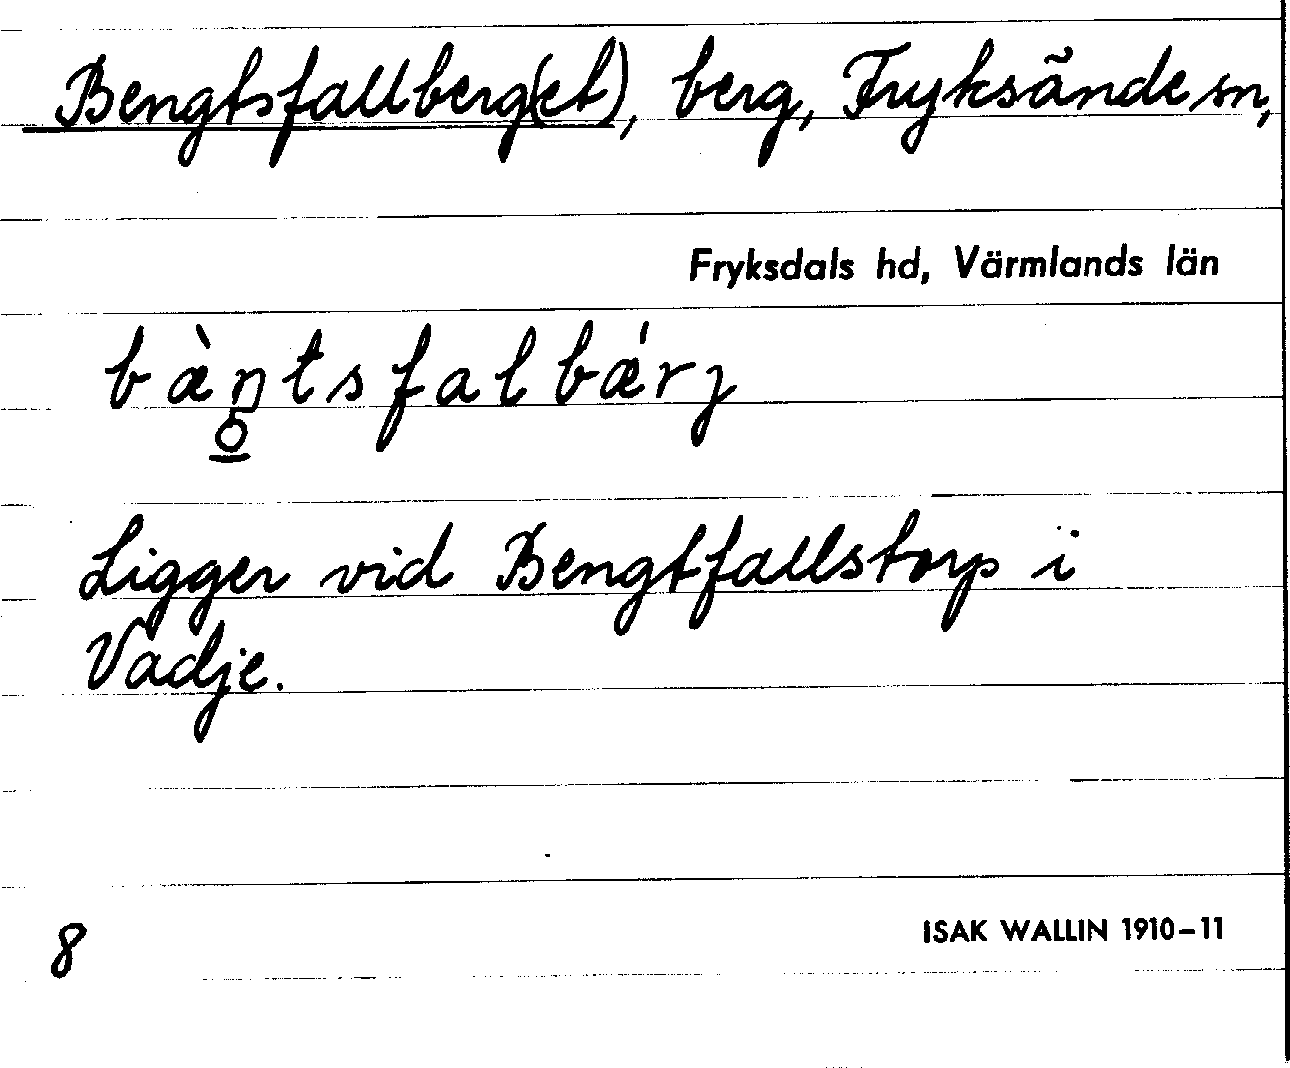 Bengtsfallberg(et), berg, Fryksände sn,
Fryksdals hd, Värmlands län
bæ̀n̥̲tsfalbǽrj
Ligger vid Bengtfallstorp i
Vadje.
8
ISAK WALLIN 1910–11